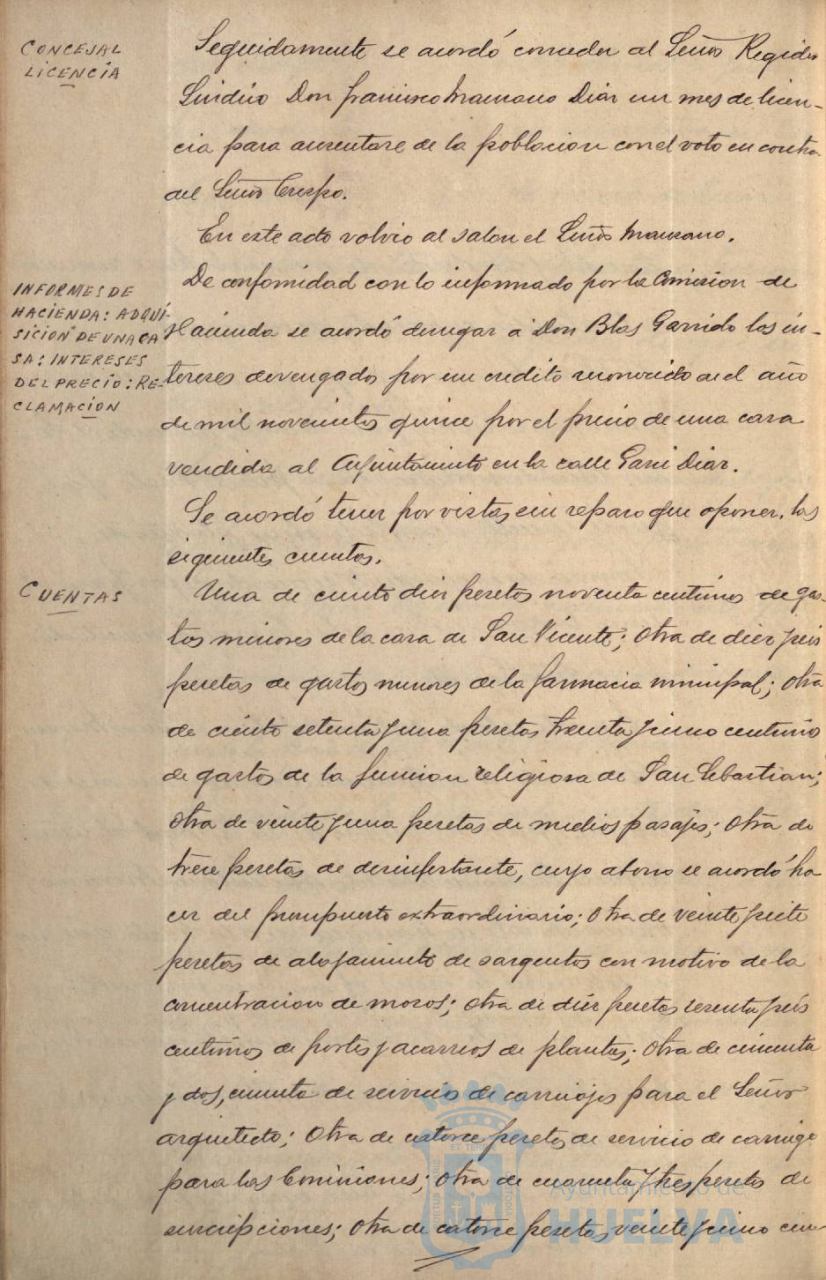 CONCEJAL
LICENCIA
Seguidamente se acordó conceder al Señor Regidor
Sindico Don Francisco Manzano Diaz un mes de licen-
cia para ausentarse de la poblacion con el voto en contra
del Señor Crespo.
En este acto volvio al salon el Señor Manzano.
INFORMES DE
HACIENDA: ADQUI-
SICION DE UNA CA
SA: INTERESES
DEL PRECIO: RE-
CLAMACION
De conformidad con lo informado por la Comision de
Hacienda se acordó denegar a Don Blas Garrido los in-
tereses devengados por un credito reconocido en el año
de mil novecientos quince por el precio de una casa
vendida al Ayuntamiento en la calle Garci Diaz.
Se acordó tener por vistas, sin reparo que oponer, las
siguientes cuentas.
CUENTAS
Una de ciento diez pesetas noventa centimos de gas-
tos menores de la casa de San Vicente; Otra de diez y seis
pesetas de gastos menores de la farmacia municipal; Otra
de ciento setenta y una pesetas treinta y cinco centimos
de gastos de la funcion religiosa de San Sebastian;
Otra de veinte y una pesetas de medios pasajes; Otra de
trece pesetas de desinfectante, cuyo abono se acordó ha
cer del presupuesto extraordinario; Otra de veinte y siete
pesetas de alojamiento de sargentos con motivo de la
concentracion de mozos; Otra de diez pesetas sesenta y seis
centimos de portes y acarreos de plantas; Otra de cincuenta
y dos, cincuenta de servicio de carruajes para el Señor
arquitecto; Otra de catorce pesetas de servicio de carruaje
para las Comisiones; Otra de cuarenta y tres pesetas de
suscripciones; Otra de catorce pesetas, veinte y cinco cen-
Ayuntamiento de
HUELVA